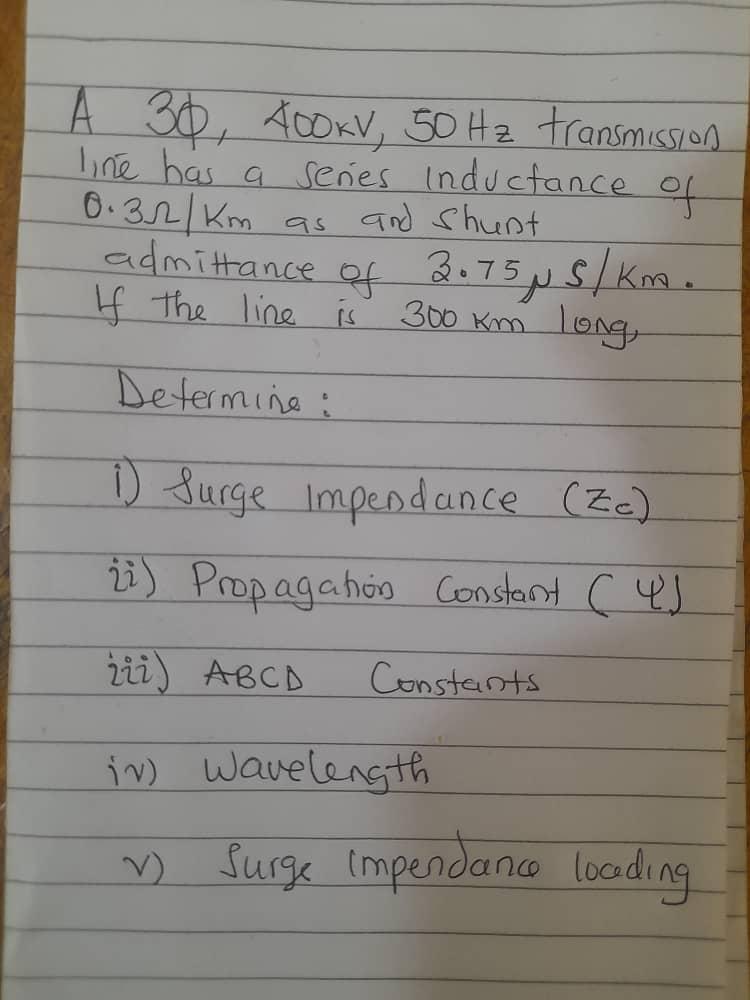 A 3Φ, 400kV, 50Hz transmission
line has a series inductance of
0.3Ω/Km as and shunt
admittance of 3.75μS/km.
If the line is 300 km long,
Determine:
i) Surge impendance (Zc)
ii) Propagation Constant (Ψ)
iii) ABCD Constants
iv) Wavelength
v) Surge impendance loading